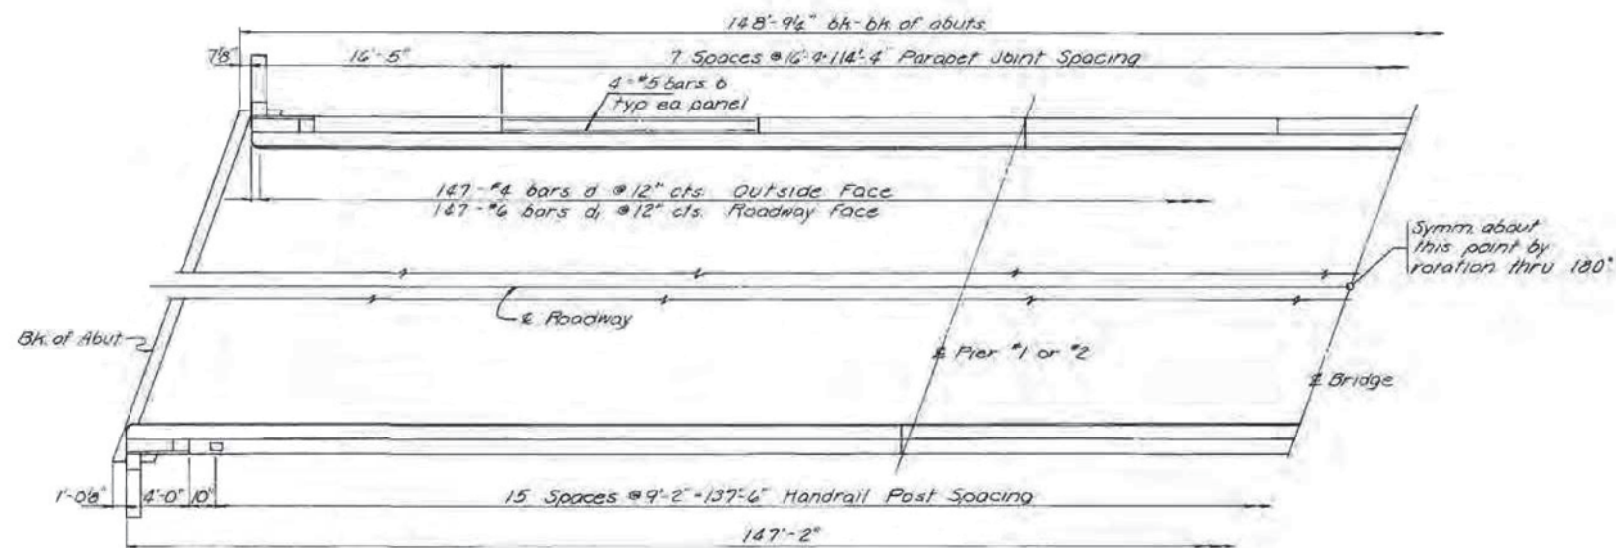 148'-9¼" bk-bk. of abuts.
7⅛" 16'-5" 7 Spaces @ 16'-4=114'-4" Parapet Joint Spacing
4-#5 bars b
typ ea panel
147-#4 bars d @ 12" cts. Outside Face
147-#6 bars d₁ @ 12" cts. Roadway Face
Symm. about
this point by
rotation thru 180°
℄ Roadway
Bk. of Abut.
℄ Pier #1 or #2
℄ Bridge
1'-0⅛" 4'-0" 10" 15 Spaces @ 9'-2"=137'-6" Handrail Post Spacing
147'-2"